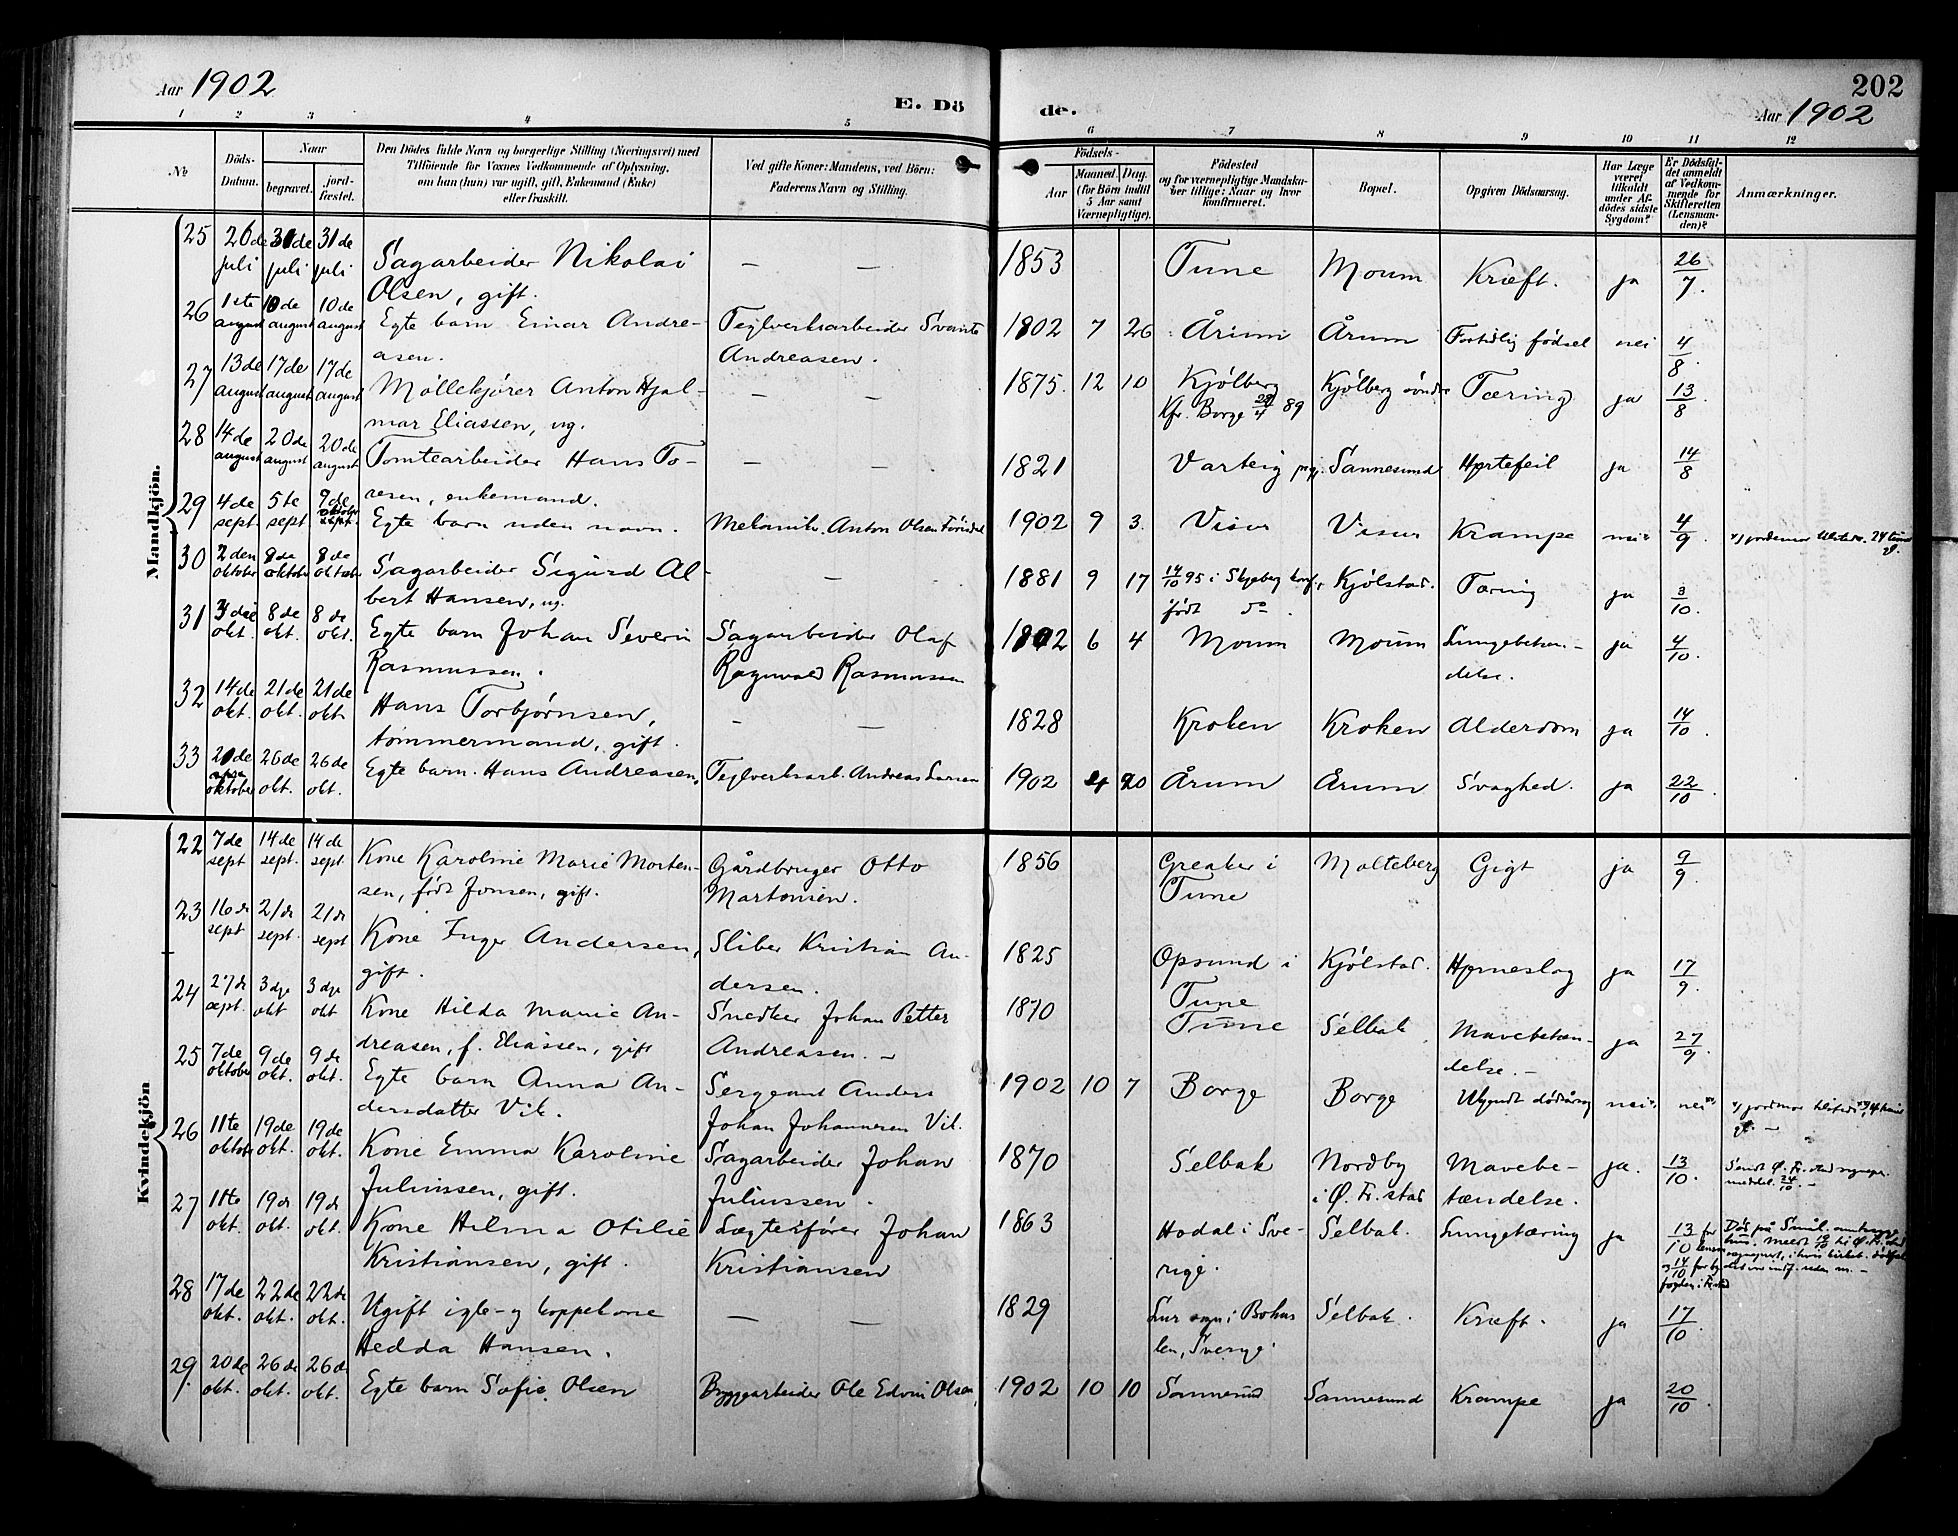 Aar 1902
E. Dö
de.
202
Aar 1902
1 2 3 4 5 6 7 8 9 10 11 12
No
Döds-Datum.
Naar
begravet.
jord-fæstet.
Den Dödes fulde Navn og borgerlige Stilling (Næringsvei) med
Tilföiende for Voxnes Vedkommende af Oplysning,
om han (hun) var ugift, gift, Enkemand (Enke)
eller fraskilt.
Ved gifte Koner: Mandens, ved Börn:
Faderens Navn og Stilling.
Födsels-
Aar
Maaned. Dag.
(for Börn indtil
5 Aar samt
Værnepligtige).
Födested
og for værnepligtige Mandska-
ber tillige: Naar og hvor
konfirmeret.
Bopæl.
Opgiven Dödsaarsag.
Har Læge
været
tilkaldt
under Af-
dödes sidste
Sygdom?
Er Dödsfal-
det anmeldt
af Vedkom-
mende for
Skifteretten
(Lensman-
den)?
Anmærkninger.
Mandkjön.
25 26de juli 31de juli 31de juli Sagarbeider Nikolai — — 1853 Tune Moum Kræft. ja 26/7.
Olsen, gift.
26 1ste august 10de august 10de august Egte barn Einar Andre- Teglverksarbeider Svante 1902 7 26 Årum Årum Fortidlig fødsel nei 4/8.
asen. Andreasen.
27 13de august 17de august 17de august Møllekjører Anton Hjal- — — 1875. 12 10 Kjölberg Kjölberg söndre Tæring ja 13/8
mar Eliassen, ug. Kfr. Borge 89
28 14de august 20de august 20de august Tomtearbeider Hans To- — — 1821 Varteig pgj. Sannesund Hjertefeil ja 14/8
resen, enkemand.
29 4de sept. 5te sept. 9de oktober Egte barn uden navn. Anton Olsen 1902 9 3. Visur Visur Krampe nei 4/9. jordemor tilstede. 24 timer gl.
30 2den oktober 8de oktober 8de oktober Sagarbeider Sigurd Al- — 1881 9 17 14/10 95 i Skjeberg konf., Kjölstad. Tæring ja 3/10.
bert Hansen, ug. født do.
31 okt. 8de okt. 8de okt. Egte barn Johan Severin Sagarbeider Olaf 1902 6 4 Moum Moum Lungebetæn- ja 4/10.
Rasmussen. Ragnvald Rasmussen delse.
32 14de okt. 21de okt. 21de okt. Hans Torbjørnsen, — — 1828 Kroken Kroken Alderdom ja 14/10
tømmermand, gift.
33 oktober 26de okt. 26de okt. Egte barn Hans Andreasen, Teglverksarb. Andreas Larsen 1902 4 20 Årum Årum Svaghed. ja 22/10
Kvindekjön
22 7de sept 14de sept. 14de sept Kone Karoline Marie Morten- Gårdbruger Otto 1856 Greaker i Molteberg Gigt ja 9/9.
sen, født Jonsen, gift. Martonsen. Tune
23 16de sept 21de sept. 21de sept Kone Inger Andersen, Sliber Kristian An- 1825 Opsund i Kjölstad. Hjerneslag ja 17/9.
gift. dersen. Tune
24 27de sept. 3dje okt 3dje okt Kone Hilda Marie An- Snedker Johan Petter 1870 Tune Selbak Mavebetæn- ja 27/9.
dreasen, f. Eliassen, gift Andreasen. — delse. —
25 7de oktober 9de okt. 9de okt. Egte barn Anna An- Sergeant Anders 1902 10 7 Borge Borge Ukjendt dödsårsag nei nei jordmor tilstede, 4 timer gl. —
dersdatter Vik. Johan Johannesen Vik.
26 11te oktober 19de okt. 19de okt. Kone Emma Karoline Sagarbeider Johan 1870 Selbak Nordby Mavebe- ja. 13/10. Sendt Ø. Fr.stad sognepr.
Juliussen, gift. Juliussen. i Ø. Fr.stad tændelse. meddel. 24/10. —
27 11te okt. 19de okt. 19de okt. Kone Hilma Otilie Lægterfører Johan 1863 Hodal i Sve- Selbak. Lungetæring ja 13/10 Død på Smål.
Kristiansen, gift. Kristiansen rige.
28 17de okt. 22de okt. 22de okt. Ugift igle- og koppekone — — 1829 Lur sogn i Bohus Selbak. Kræft. ja 17/10.
Hedda Hansen. len, Sverige.
29. 20de okt. 26de okt. 26de okt. Egte barn Sofie Olsen Byggearbeider Ole Edvin Olsen 1902 10 10 Sannesund Sannesund Krampe ja 20/10.